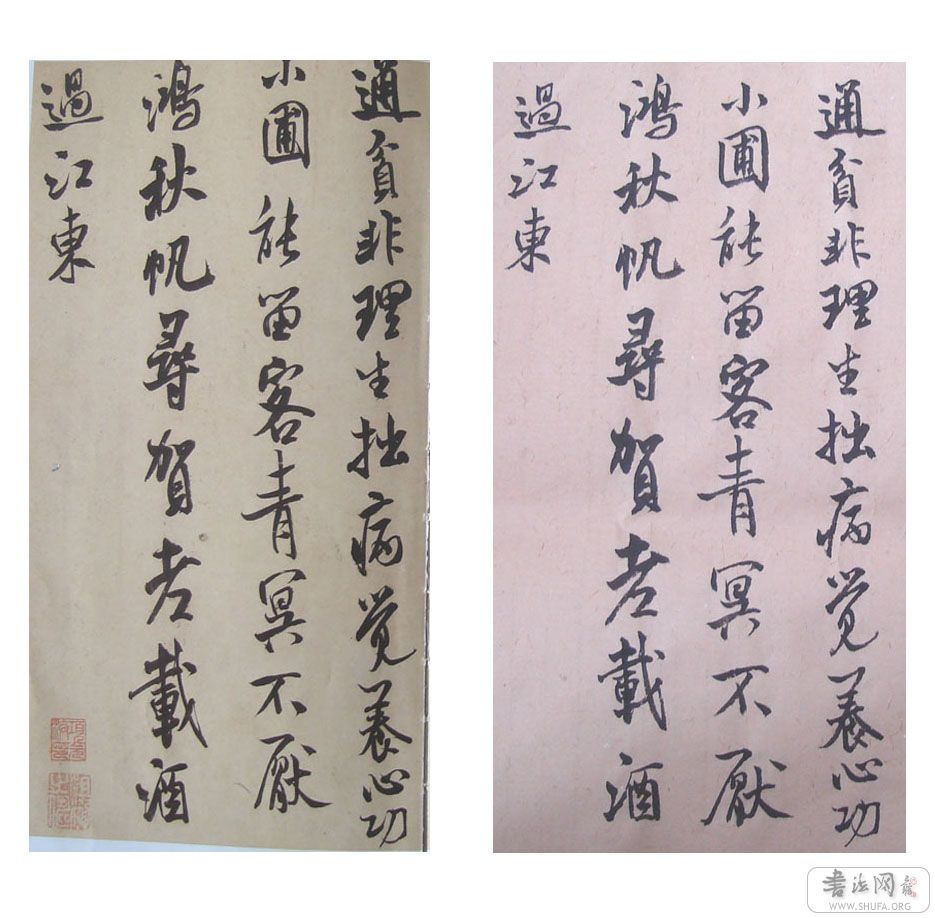 通貧非理生拙病覺養心功
小圃能留客青冥不厭
鴻秋帆尋賀老載酒
過江東
通貧非理生拙病覺養心功
小圃能留客青冥不厭
鴻秋帆尋賀老載酒
過江東
书法网
WWW.SHUFA.ORG